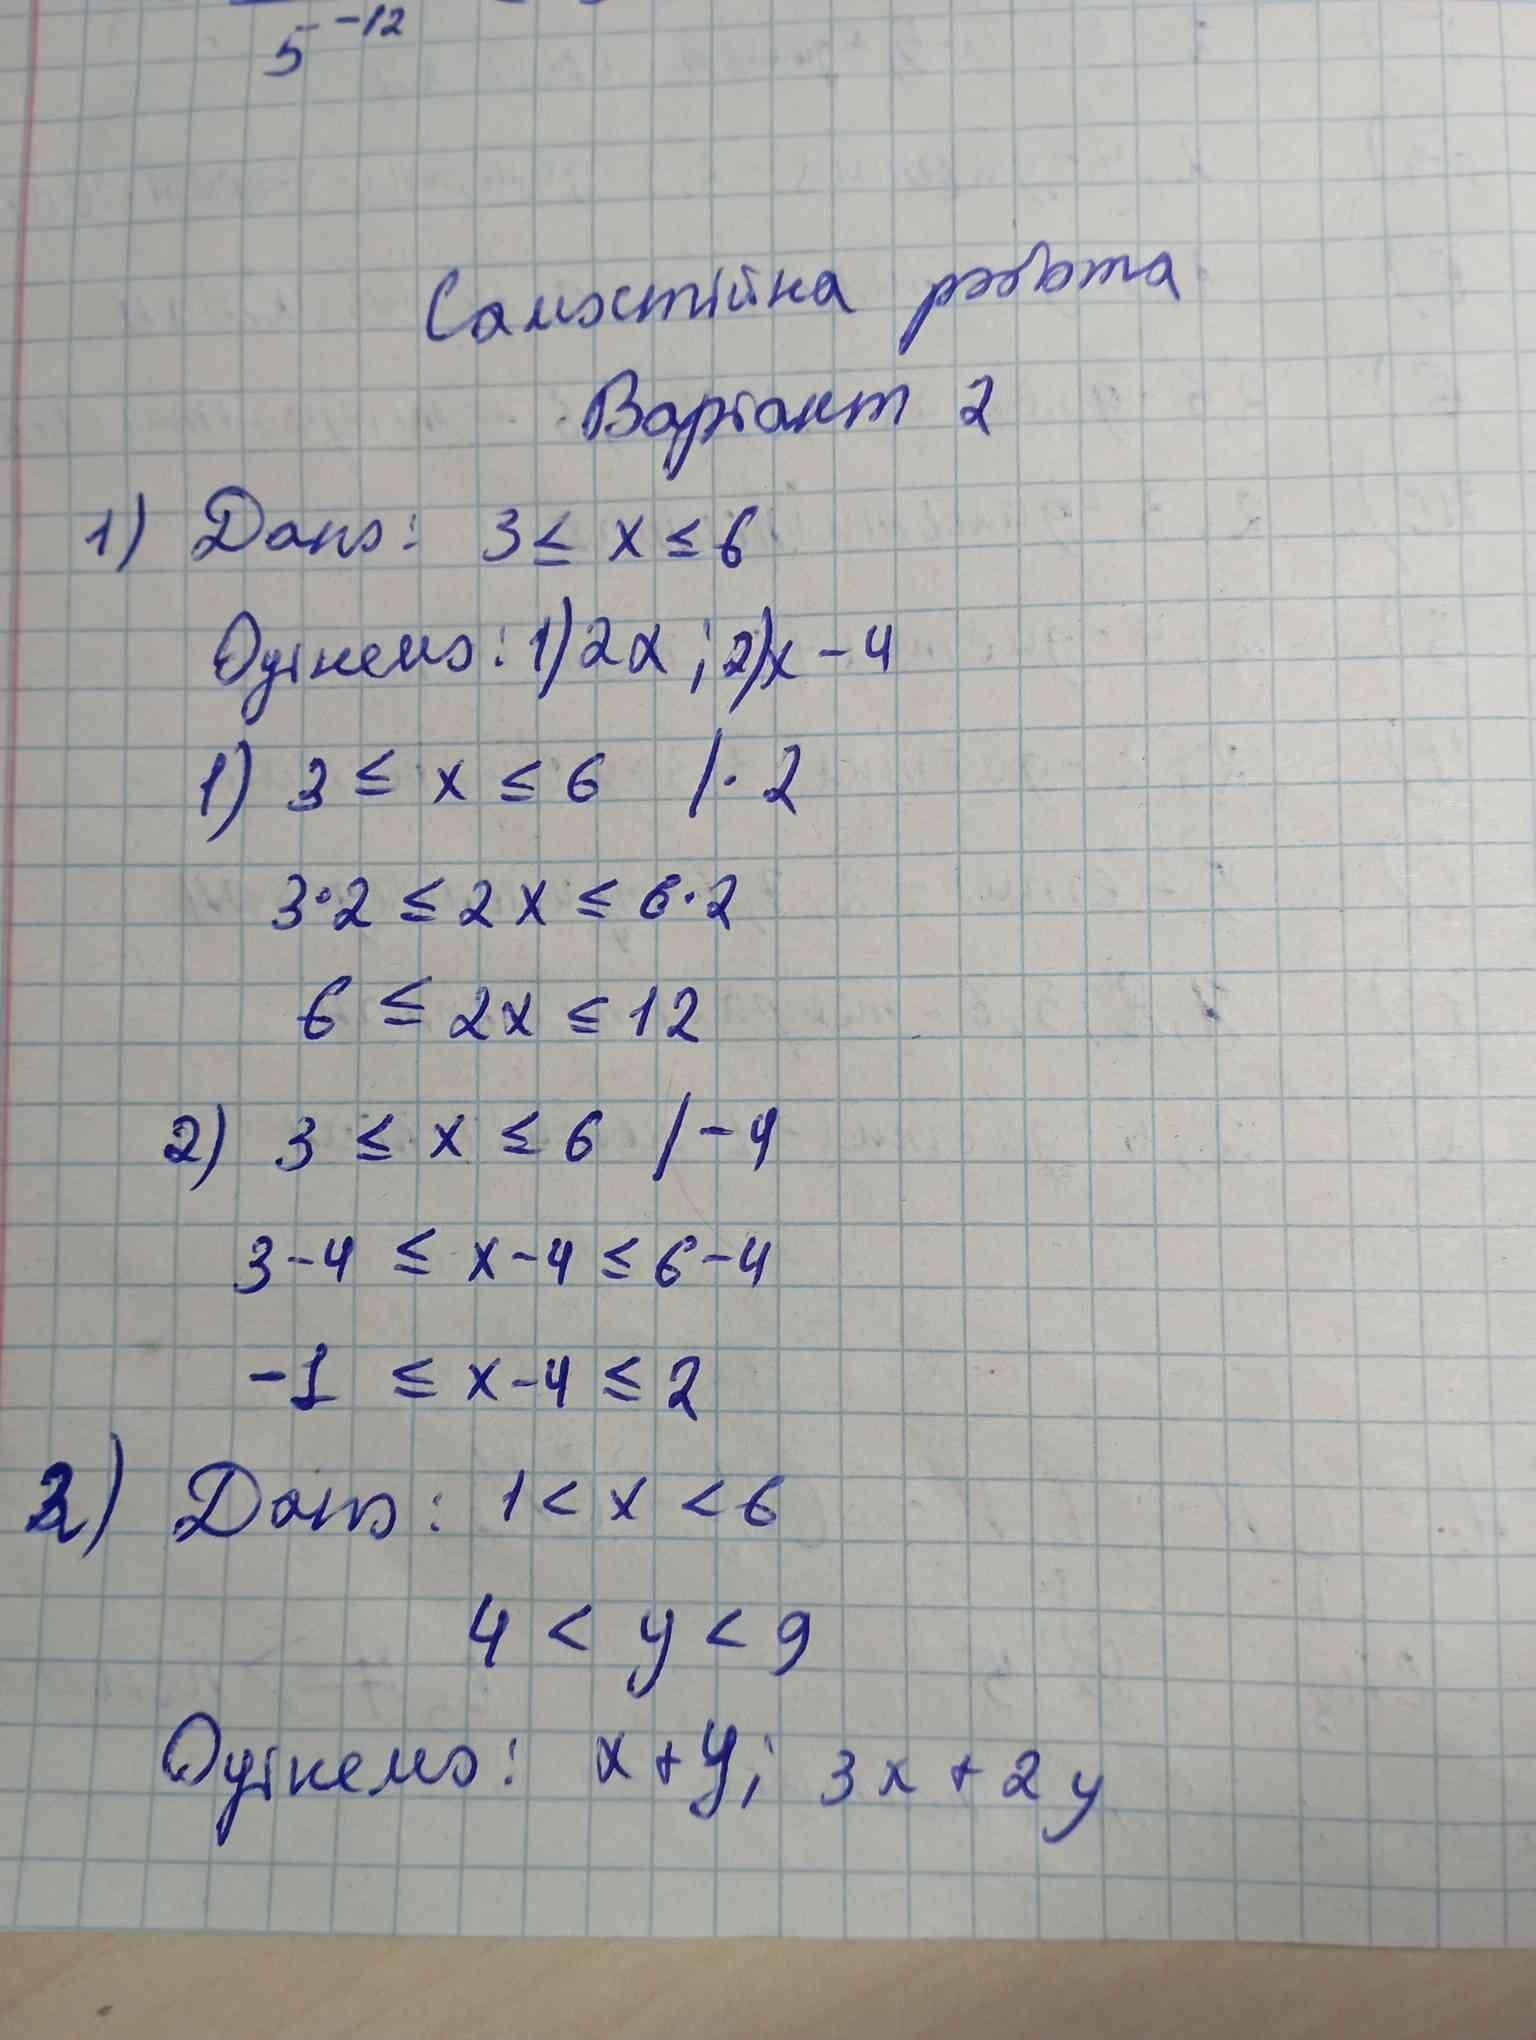 5⁻¹²
Самостійна робота
Варіант 2
1) Дано: 3 ≤ x ≤ 6
Оцінемо: 1) 2x ; 2) x - 4
1) 3 ≤ x ≤ 6 / · 2
3 · 2 ≤ 2x ≤ 6 · 2
6 ≤ 2x ≤ 12
2) 3 ≤ x ≤ 6 / - 4
3 - 4 ≤ x - 4 ≤ 6 - 4
-1 ≤ x - 4 ≤ 2
2) Дано: 1 < x < 6
4 < y < 9
Оцінемо: x + y; 3x + 2y